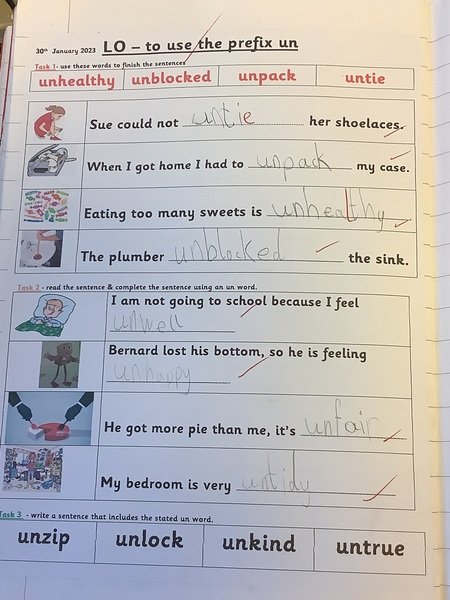 30th January 2023 LO – to use the prefix un
Task 1- use these words to finish the sentences
unhealthy unblocked unpack untie
Sue could not untie her shoelaces.
When I got home I had to unpack my case.
Eating too many sweets is unhealthy
The plumber unblocked the sink.
Task 2 - read the sentence & complete the sentence using an un word.
I am not going to school because I feel
unwell
Bernard lost his bottom, so he is feeling
unhappy
He got more pie than me, it's unfair
My bedroom is very untidy
Task 3 - write a sentence that includes the stated un word.
unzip unlock unkind untrue